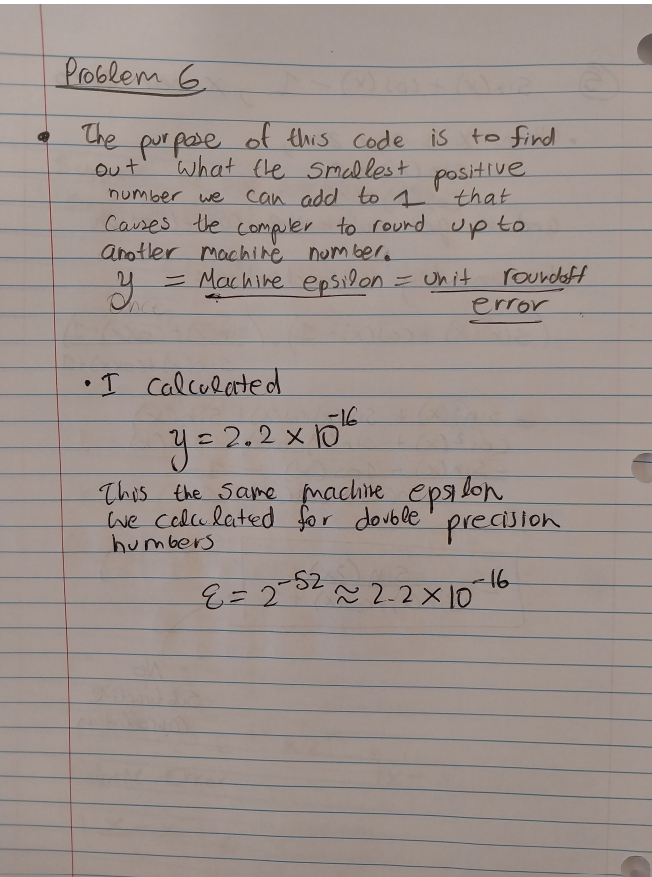 Problem 6
• The purpose of this code is to find
out what the smallest positive
number we can add to 1 that
causes the computer to round up to
another machine number.
y = Machine epsilon = unit roundoff
error
• I calculated
y = 2.2 × 10^-16
This the same machine epsilon
we calculated for double precision
numbers
ε = 2^-52 ≈ 2.2 × 10^-16